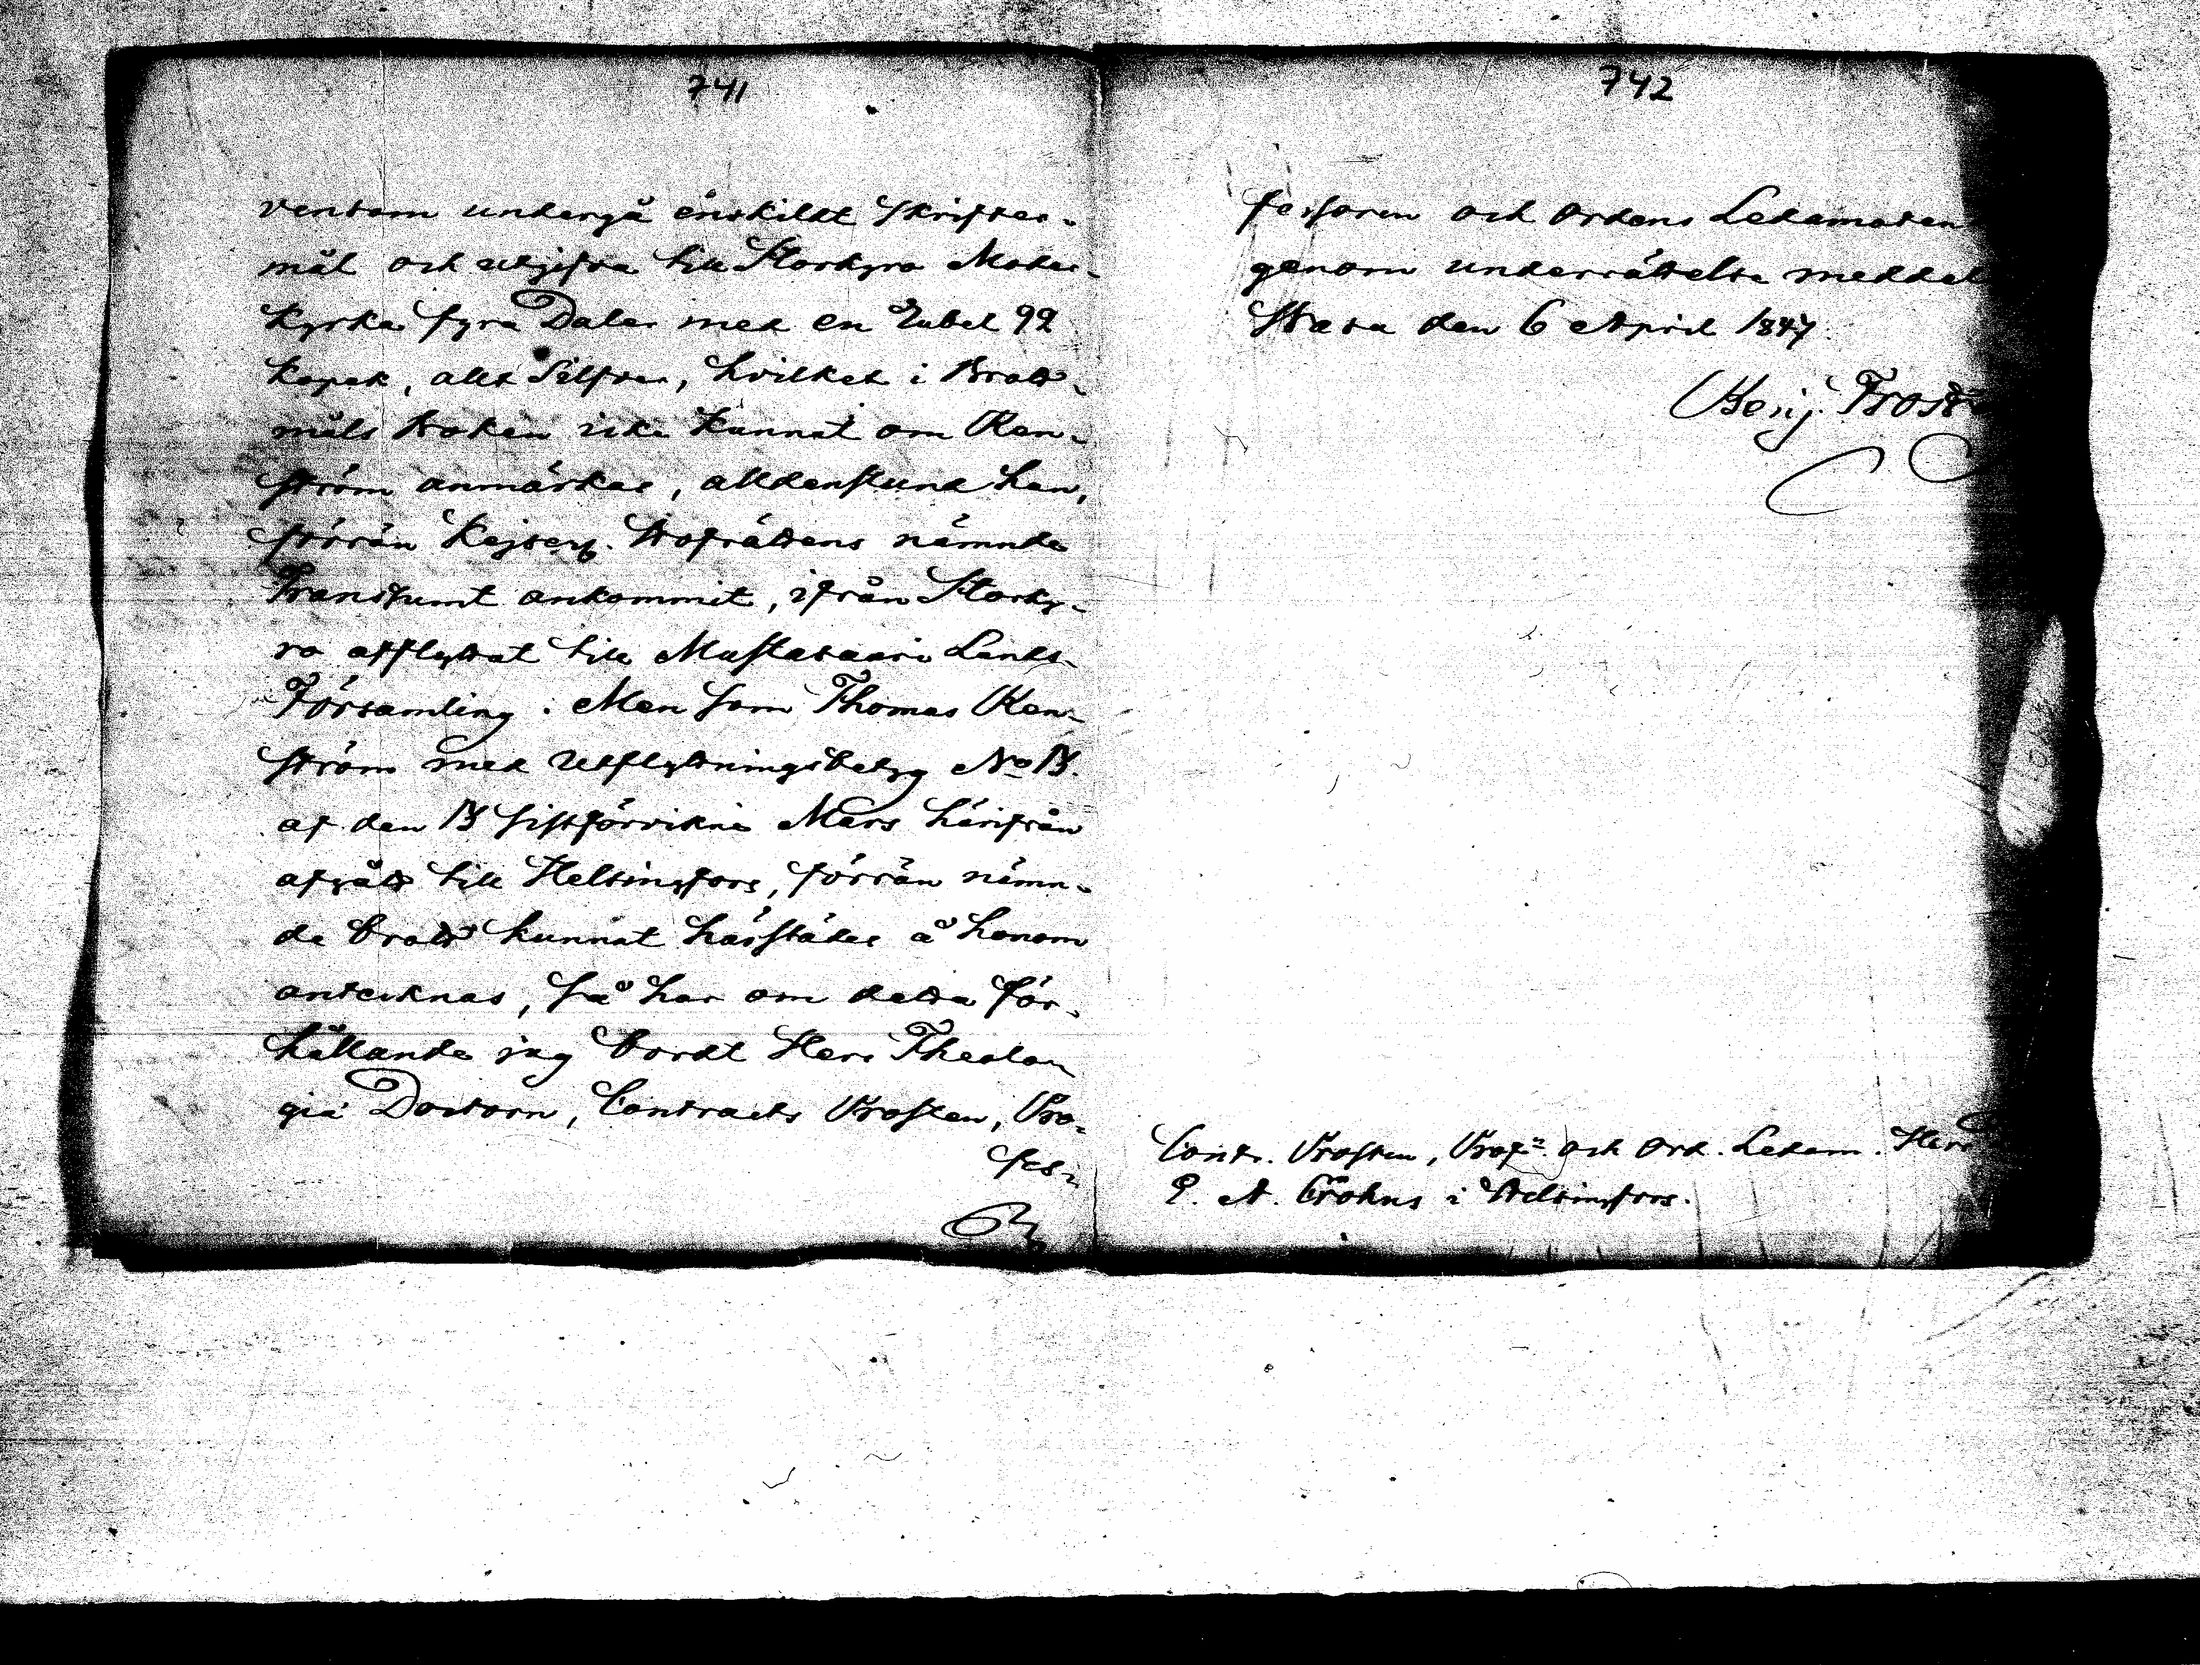 741
vensom undergå enskildt Skriftes-
mål och utgifva till Storkyro Moder-
kyrka fyra Daler med en Rubel 92
kopek, allt Silfver, hvilket i Brott-
måls boken icke kunnat om Ren-
ström anmärkas, alldenstund han,
förrän Kejserl. Hofrättens nämnde
Transsumt ankommit, ifrån Storky-
ro afflyttat till Mustasaari Lands-
Församling. Men som Thomas Ren-
ström med Utflyttningsbetyg No 13.
af den 13 sistförvikne Mars härifrån
afgått till Helsingfors, förrän nämn-
de brott kunnat härstädes å honom
antecknas, så har om detta för-
hållande jag bordt Herr Theolo-
giæ Doctorn, Contracts Prosten, Pro-
fes-
742
fessoren och Ordens Ledamoten
genom underrättelse meddel
Wasa den 6 April 1847.
Benj. Frost
Contr. Prosten, Prof. och Ord. Ledam. Herr
E. A. Crohns i Helsingfors.